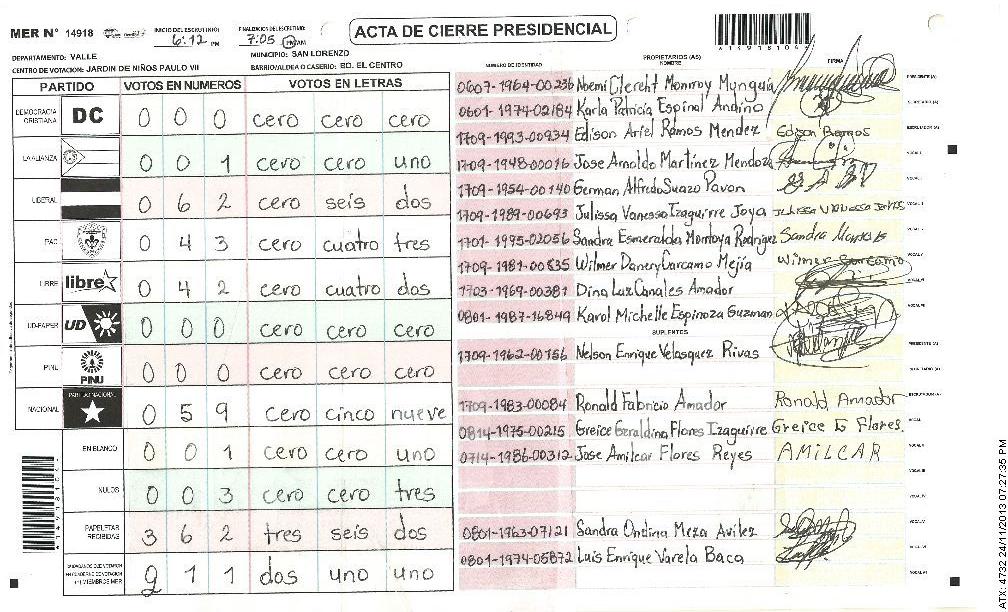 MER N° 14918
INICIO DEL ESCRUTINIO: 6:12 PM
FINALIZACION DEL ESCRUTINIO: 7:05 PM AM
ACTA DE CIERRE PRESIDENCIAL
DEPARTAMENTO: VALLE
MUNICIPIO: SAN LORENZO
CENTRO DE VOTACION: JARDIN DE NIÑOS PAULO VII
BARRIO/ALDEA O CASERIO: BO. EL CENTRO
PARTIDO VOTOS EN NUMEROS VOTOS EN LETRAS
DEMOCRACIA CRISTIANA DC 0 0 0 cero cero cero
LA ALIANZA 0 0 1 cero cero uno
LIBERAL 0 6 2 cero seis dos
PAC 0 4 3 cero cuatro tres
LIBRE libre 0 4 2 cero cuatro dos
UD-FAPER UD 0 0 0 cero cero cero
PINU PINU 0 0 0 cero cero cero
NACIONAL PARTIDO NACIONAL 0 5 9 cero cinco nueve
EN BLANCO 0 0 1 cero cero uno
NULOS 0 0 3 cero cero tres
PAPELETAS RECIBIDAS 3 6 2 tres seis dos
2 1 1 dos uno uno
NUMERO DE IDENTIDAD PROPIETARIOS (AS) NOMBRE FIRMA
0607-1964-00236 Noemi Clereht Monroy Munguia PRESIDENTE (A)
0601-1974-02184 Karla Patricia Espinal Andino SECRETARIO (A)
1709-1993-00934 Edison Ariel Ramos Mendez Edison Ramos ESCRUTADOR (A)
1709-1948-00016 Jose Arnoldo Martínez Mendoza VOCAL I
1709-1954-00140 German Alfredo Suazo Pavon VOCAL II
1709-1989-00693 Julissa Vanessa Izaguirre Joya
1701-1995-02056 Sandra Esmeralda Montoya Rodriguez Sandra
1709-1981-00835 Wilmer Danery Carcamo Mejía Wilmer Carcamo
1703-1969-00381 Dina Luz Canales Amador
0801-1987-16849 Karol Michelle Espinoza Guzman
SUPLENTES
1709-1962-00156 Nelson Enrique Velasquez Rivas PRESIDENTE (A)
SECRETARIO (A)
1709-1983-00084 Ronald Fabricio Amador Ronald Amador ESCRUTADOR (A)
0814-1975-00215 Greice Geraldina Flores Izaguirre Greice G Flores. VOCAL I
0714-1986-00312 Jose Amilcar Flores Reyes AMILCAR VOCAL II
VOCAL III
VOCAL IV
0801-1963-07121 Sandra Ondina Meza Avilez VOCAL V
0801-1974-05872 Luis Enrique Varela Baca
ATX: 4732 24/11/2013 07:27:35 PM